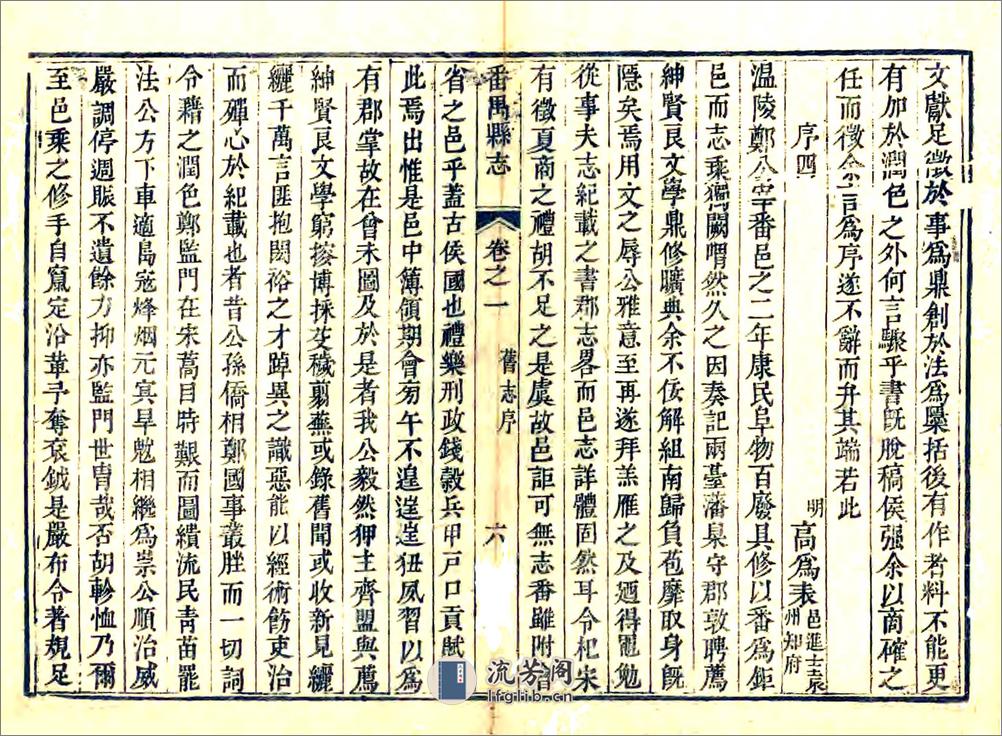 文獻足徵於事爲鼎創於法爲檃括後有作者料不能更
有加於潤色之外何言驟乎書旣脫稿侯强余以商確之
任而徵余言爲序遂不辭而弁其端若此
序四
明
高爲表
邑進士袁
州知府
温陵鄭公宰番邑之二年康民阜物百廢具修以番爲鉅
邑而志乘獨闕喟然久之因奏記兩臺藩臬守郡敦聘薦
紳賢良文學鼎修曠典余不佞解組南歸負苞糜取身旣
隱矣焉用文之辱公雅意至再遂拜羔雁之及廼得黽勉
從事夫志紀載之書郡志畧而邑志詳體固然耳令杞宋
有徵夏商之禮胡不足之是虞故邑詎可無志番雖附省
番禺縣志
卷之一
舊志序
六
省之邑乎蓋古侯國也禮樂刑政錢穀兵甲戸口貢賦
此焉出惟是邑中簿領期會旁午不遑遑遑狃風習以爲
有郡掌故在曾未圖及於是者我公毅然狎主齊盟與薦
紳賢良文學窮搜博採芟穢翦蕪或錄舊聞或收新見纚
纚千萬言匪抱閎裕之才踔異之識惡能以經術飭吏治
而殫心於紀載也者昔公孫僑相鄭國事叢脞而一切詞
令藉之潤色鄭監門在宋蒿目時艱而圖繢流民靑苗罷
法公方下車適島寇烽烟元冥旱魃相繼爲祟公順治威
嚴調停週賑不遺餘力抑亦監門世冑哉否胡軫恤乃爾
至邑乘之修手自竄定沿革予奪袞鉞是嚴布令著規足
流芳阁
lfglib.cn